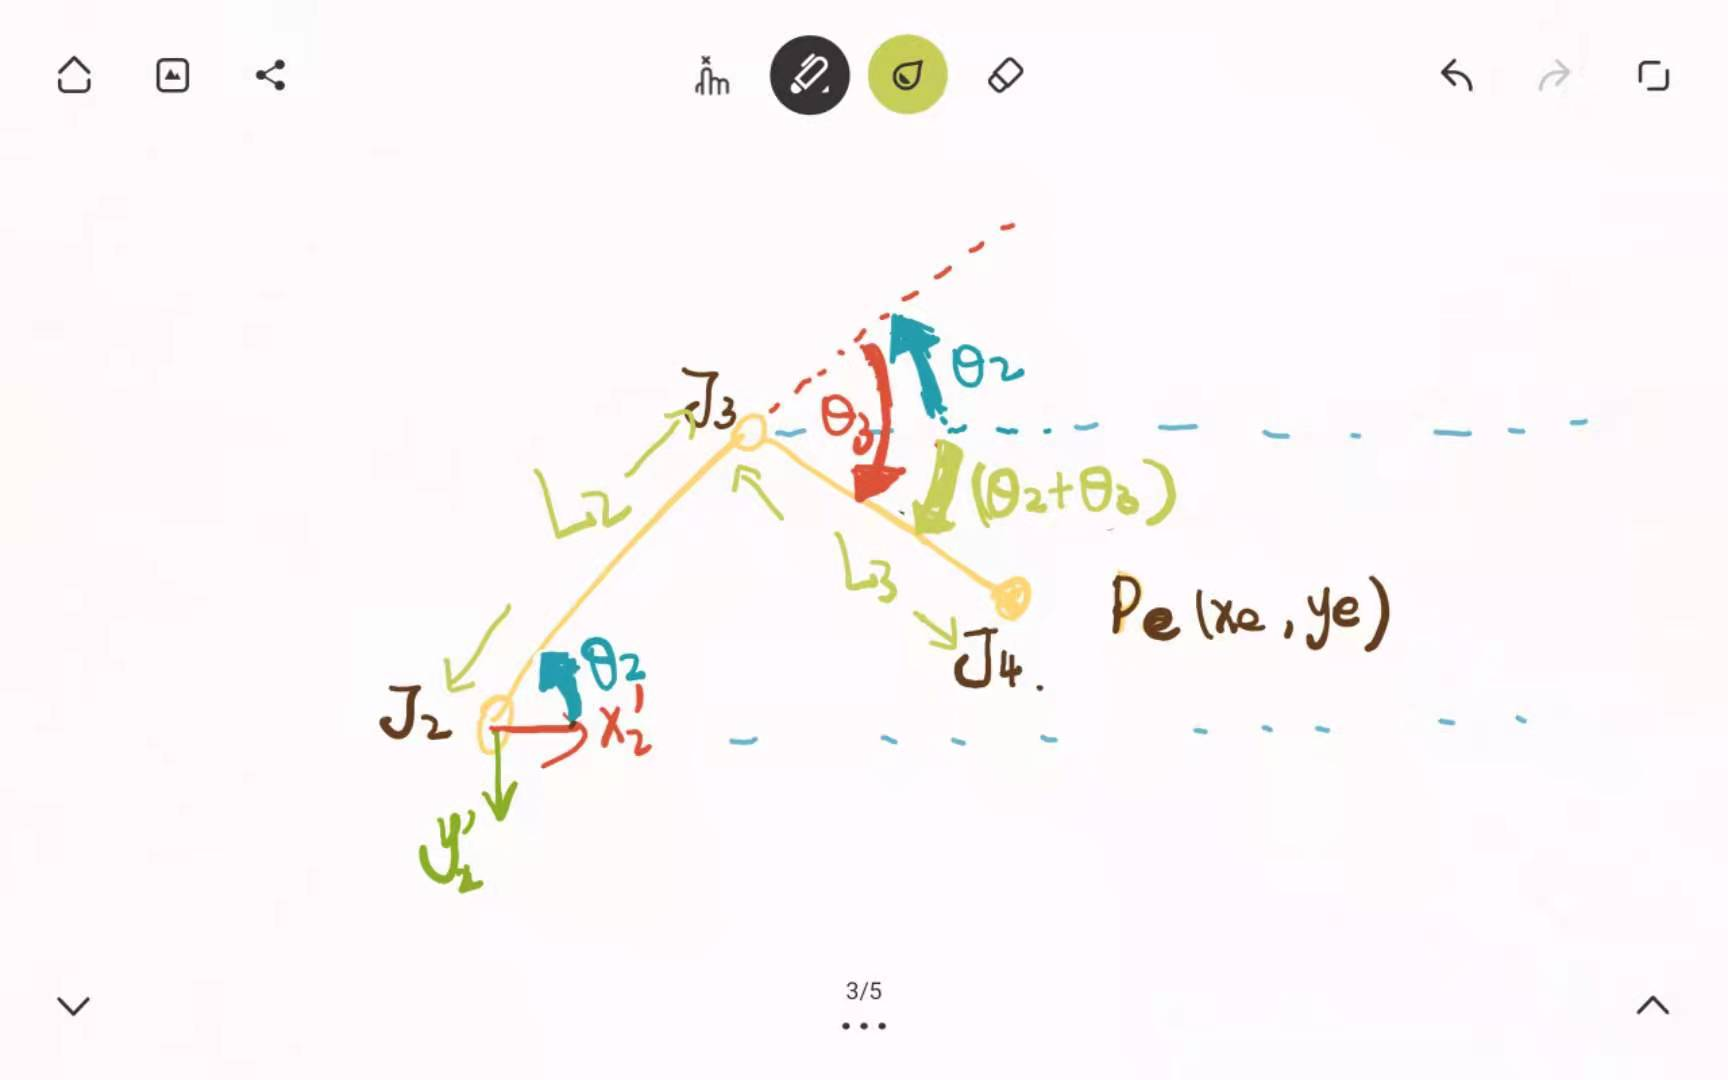 J3
θ2
θ3
L2
(θ2+θ3)
L3
Pe(xe,ye)
J4.
J2
θ2
x2'
y2'
3/5